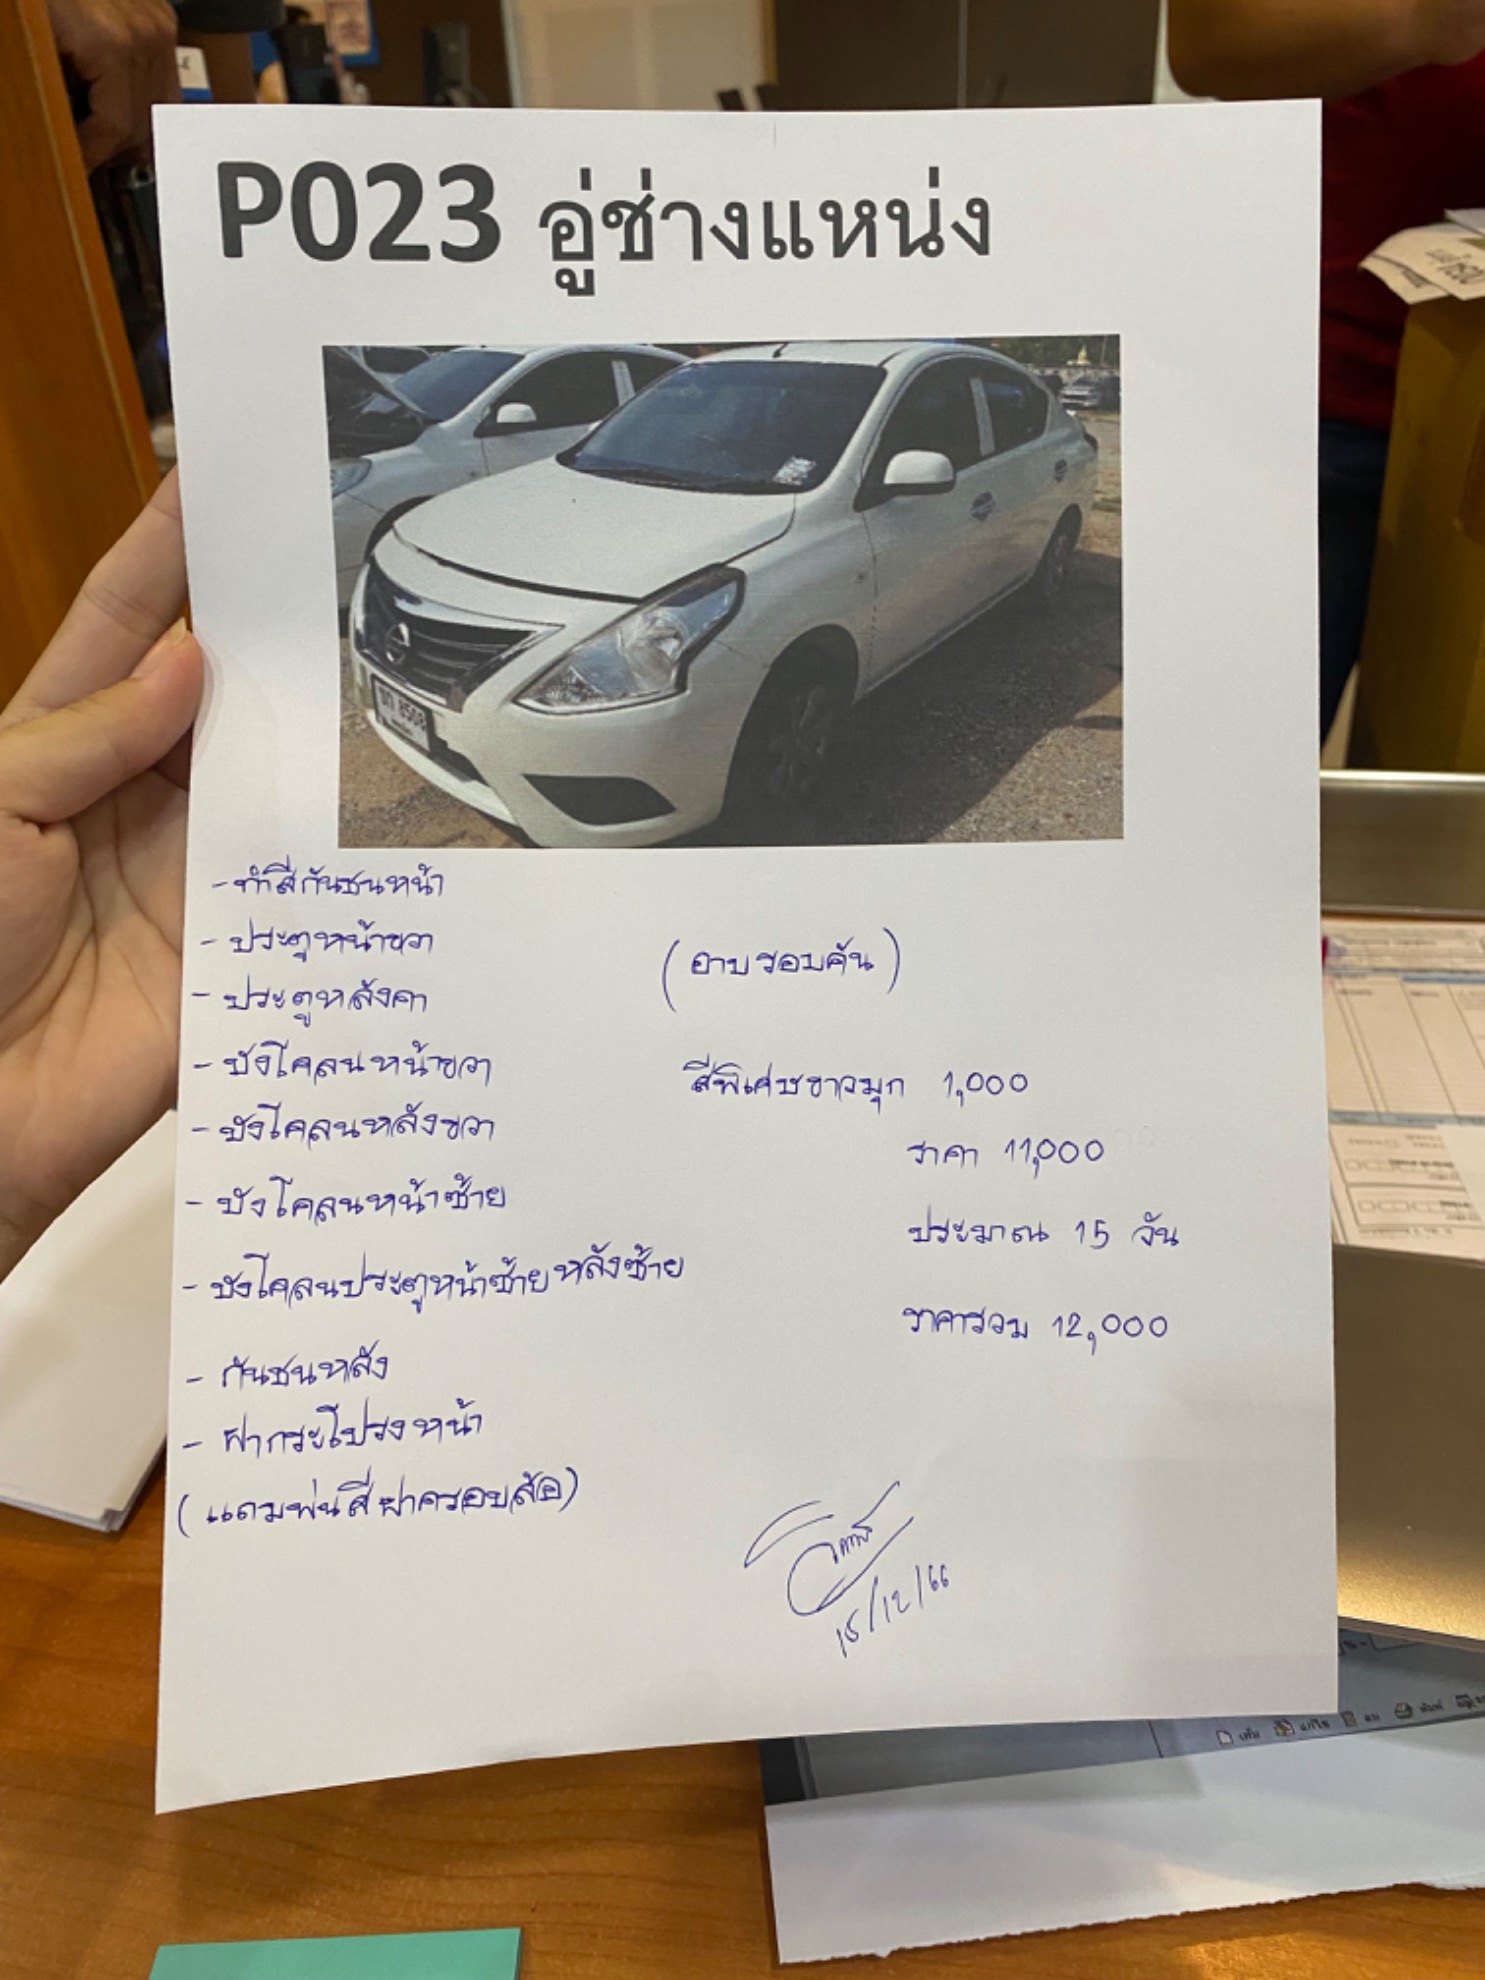 P023 อู่ช่างแหน่ง
8508
-ทำสีกันชนหน้า
- ประตูหน้าขวา
- ประตูหลังคา
(อาบรอบคัน)
- บังโคลนหน้าขวา
สีพิเศษขาวมุก 1,000
- บังโคลนหลังขวา
ราคา 11,000
- บังโคลนหน้าซ้าย
ประมาณ 15 วัน
- บังโคลนประตูหน้าซ้ายหลังซ้าย
ราคารวม 12,000
- กันชนหลัง
- ฝากระโปรงหน้า
(แถมพ่นสีฝาครอบล้อ)
15/12/66
เพิ่ม แก้ไข ลบ พิมพ์